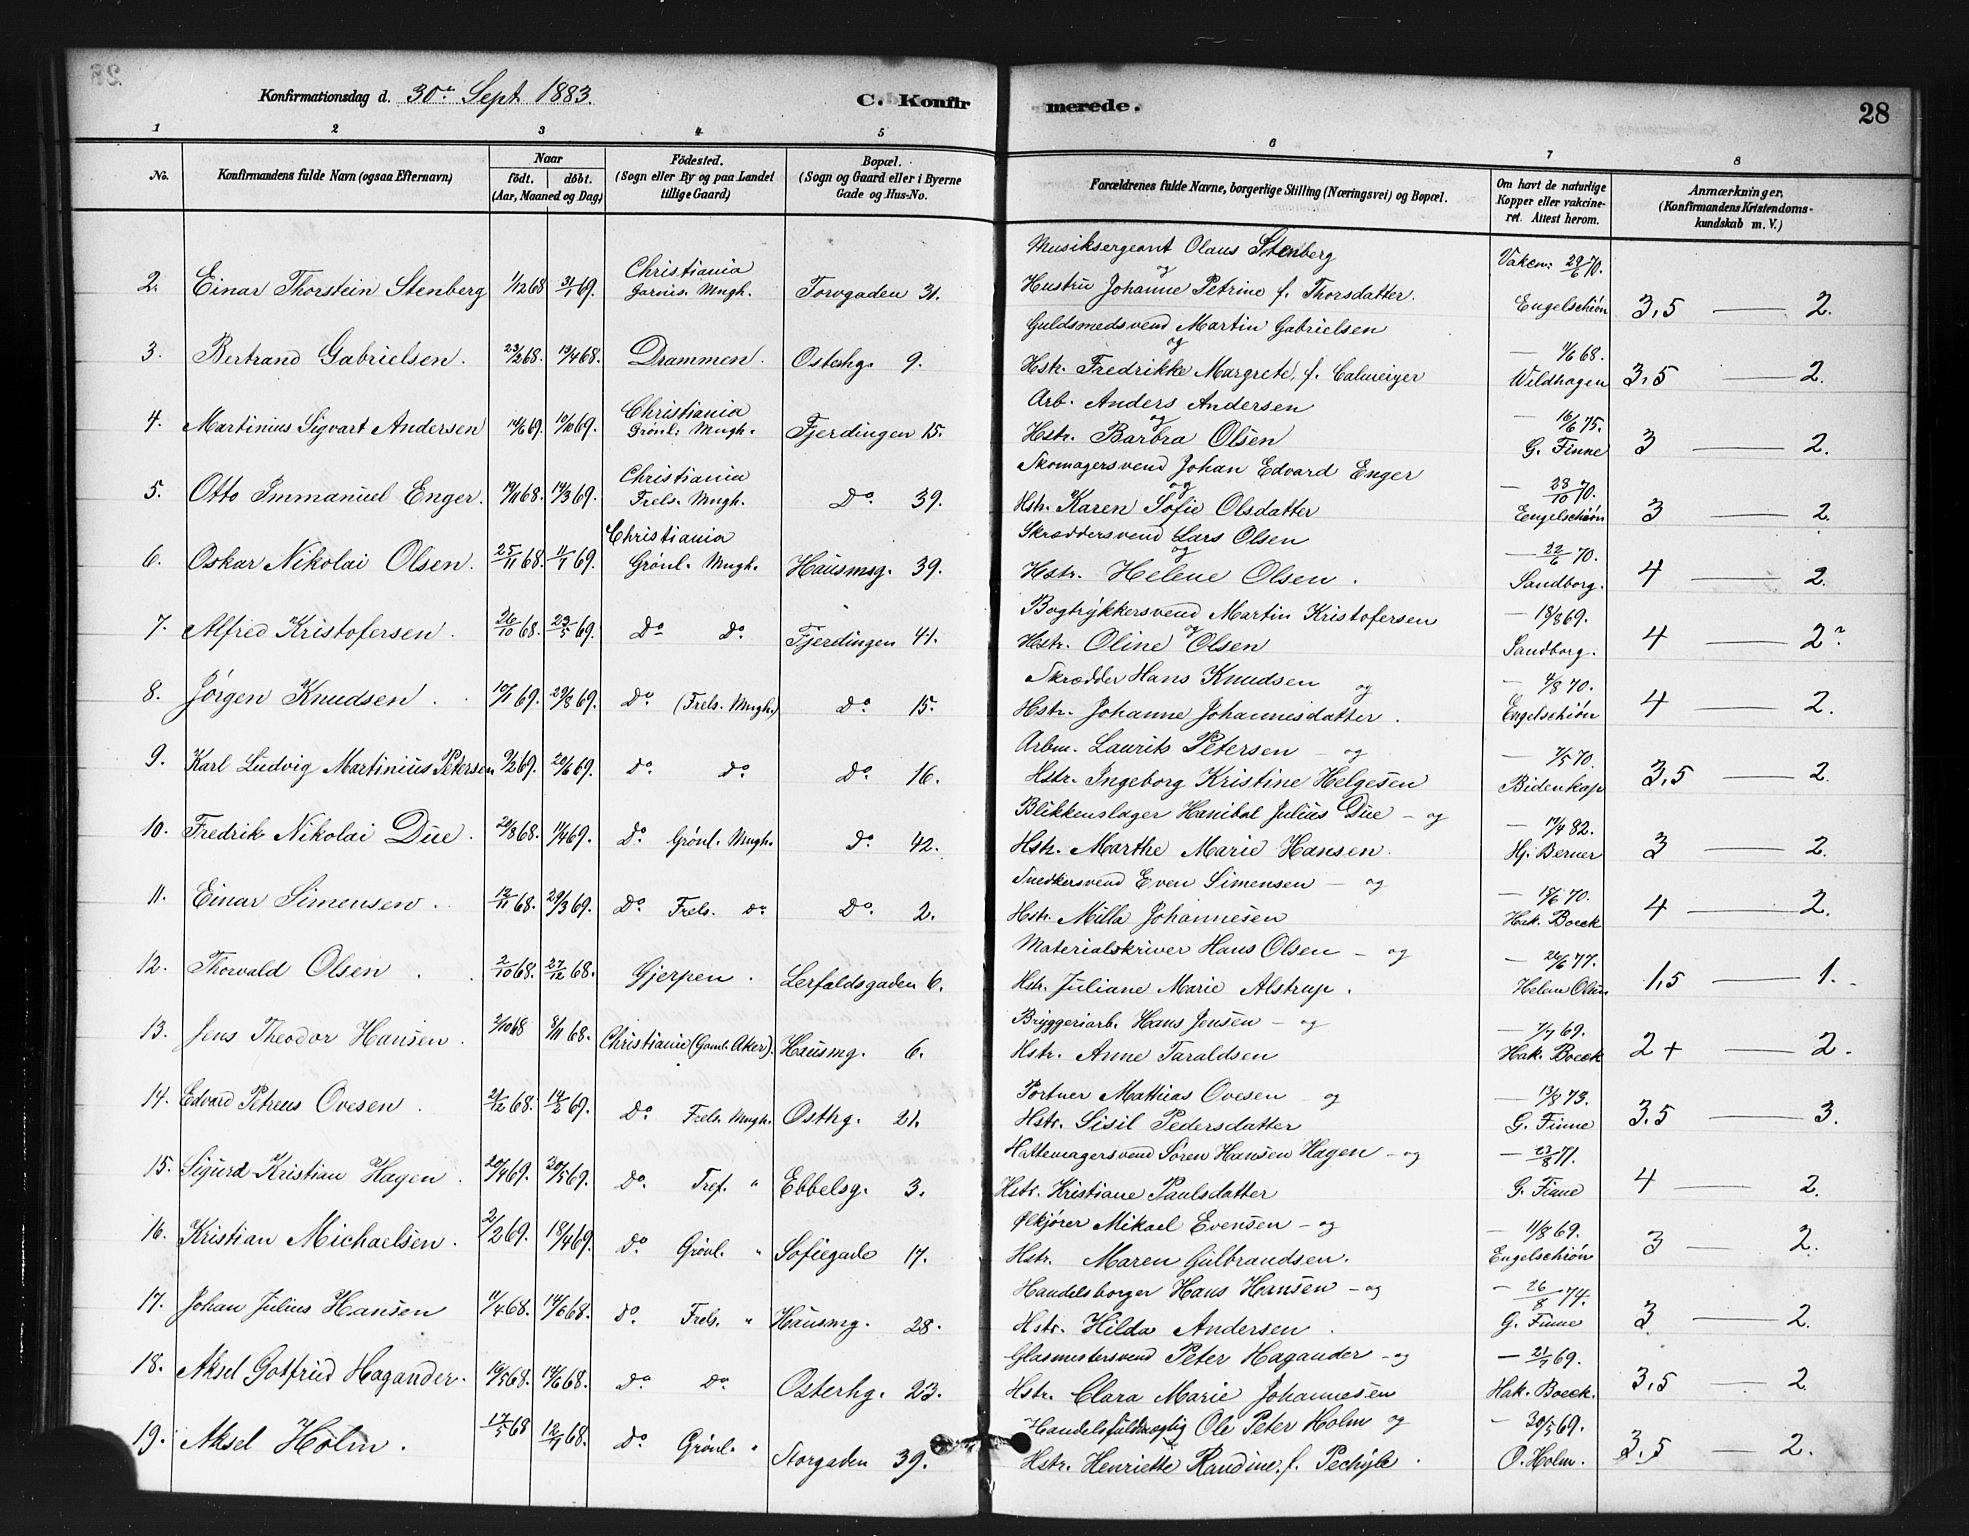 Konfirmationsdag d. 30te Sept. 1883.
C. Konfirmerede.
28
1 2 3 4 5 6 7 8
No. Konfirmandens fulde Navn (ogsaa Efternavn) Naar födt. döbt. (Aar, Maaned og Dag) Födested. (Sogn eller By og paa Landet tillige Gaard) Bopæl. (Sogn og Gaard eller i Byerne Gade og Hus-No. Forældrenes fulde Navne, borgerlige Stilling (Næringsvei) og Bopæl. Om havt de naturlige Kopper eller vakcineret. Attest herom. Anmærkninger. (Konfirmandens Kristendomskundskab m. V.)
2. Einar Thorstein Stenberg 1/12 68 31/1 69. Christiania Garnis. Mngh. Torvgaden 31. Musiksergeant Olaus Stenberg og Hustru Johanne Petrine f. Thorsdatter. Vakcin: 29/6 70. Engelschiön 3,5 — 2.
3. Bertrand Gabrielsen. 23/2 68. 13/4 68. Drammen. Osterhg. 9. Guldsmedsvend Martin Gabrielsen og Hstr. Fredrikke Margrete, f. Calmeiyer — 11/6 68. Wildhagen 3,5 — 2.
4. Martinius Sigvart Andersen 14/6 69. 10/10 69. Christiania Grönl. Mngh. Fjerdingen 15. Arb. Anders Andersen og Hstr. Barbra Olsen — 16/6 75. G. Finne 3 — 2.
5. Otto Immanuel Enger. 19/11 68. 14/3 69. Christiania Frels. Mngh. Do. 39. Skomagersvend Johan Edvard Enger og Hstr. Karen Sofie Olsdatter — 28/10 70. Engelschiön 3 — 2.
6. Oskar Nikolai Olsen. 25/11 68. 11/1 69. Christiania Grönl. Mngh. Hausmsg. 39. Skræddersvend Lars Olsen og Hstr. Helene Olsen. — 22/6 70. Sandborg. 4 — 2.
7. Alfred Kristofersen. 26/10 68. 23/5 69. Do Do. Fjerdingen 41. Bogtrykkersvend Martin Kristofersen og Hstr. Oline Olsen — 18/8 69. Sandborg. 4 — 2
8. Jörgen Knudsen. 10/1 69. 29/8 69. Do (Frels. Mngh.) Do. 15. Skrædder Hans Knudsen og Hstr. Johanne Johannesdatter. — 4/8 70. Engelschiön 4 — 2.
9. Karl Ludvig Martinius Petersen 9/2 69. 20/6 69. Do. Do. Do. 16. Arbm. Laurits Petersen — og Hstr. Ingeborg Kristine Helgesen — 7/5 70. Bidenkap 3,5 — 2.
10. Fredrik Nikolai Due. 20/8 68. 1/4 69. Do. Grönl. Mngh. Do. 42. Blikkenslager Hanibal Julius Due — og Hstr. Marthe Marie Hansen. — 17/4 82. Hj. Berner 3 — 2.
11. Einar Simensen. 12/11 68. 29/3 69. Do. Frels. Do. Do. 2. Snedkersvend Even Simensen — og Hstr. Milla Johannesen — 15/6 70. Hak. Boeck 4 — 2.
12. Thorvald Olsen. 2/10 68. 27/12 68. Gjerpen. Lerfaldsgaden 6. Materialskriver Hans Olsen — og Hstr. Juliane Marie Alstrup. — 26/6 77. Helene Olsen 1,5 — 1.
13. Jens Theodor Hansen. 2/10 68 8/11 68. Christiania (Gamle Aker). Hausmg. 6. Bryggeriarb. Hans Jensen — og Hstr. Anne Taraldsen — 7/7 69. Hak. Boeck 2+ — 2.
14. Edvard Petreus Ovesen. 2/12 68. 14/2 69. Do. Frels. Mngh. Osthg. 21. Portner Mathias Ovesen — og Hstr. Sisil Pedersdatter — 13/8 73. G. Finne 3.5 — 3.
15. Sigurd Kristian Hagen. 20/4 69. 30/5 69. Do. Tref. " Ebbelsg. 3. Hattemagersvend Sören Hansen Hagen — og Hstr. Kristiane Paulsdatter — 23/8 71. G. Finne 4 — 2.
16. Kristian Michaelsen. 2/2 69. 18/4 69. Do. Grönl. " Sofiegade 17. Ølkjører Mikael Evensen — og Hstr. Maren Gulbrandsen. — 11/8 69. Engelschiön 3 — 2.
17. Johan Julius Hansen 11/4 68. 14/6 68. Do. Frels. " Hausmg. 28. Handelsborger Hans Hansen — og Hstr. Hilda Andersen. — 26/8 74. G. Finne 3 — 2.
18. Aksel Gotfried Hagander. 10/5 68. 14/6 68. Do. Do. Osterhg. 23. Glasmestersvend Peter Hagander — og Hstr. Clara Marie Johannesen — 21/7 69. Hak. Boeck. 3,5 — 2
19. Aksel Holm. 17/5 68 12/7 68. Do. Grönl. " Storgaden 39. Handelsfuldmægtig Ole Peter Holm og Hstr. Henriette Randine, f. Pechyle. — 30/5 69. O. Holm. 3.5 — 2.